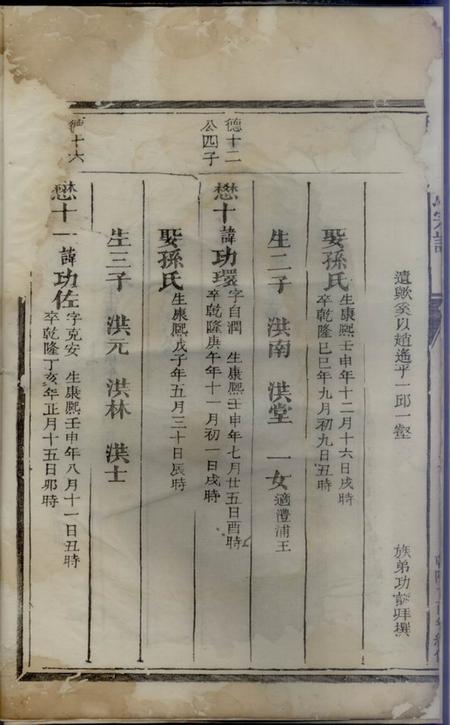 族弟功 拜撰
娶孫氏 生康熙壬申年十二月十六日戌時
卒乾隆己巳年九月初九日丑時
生二子 洪南 洪堂 一女 適禮浦王
德十二
公四子
懋十 諱功環 字自潤 生康熙壬申年七月廿五日酉時
卒乾隆庚午年十一月初一日戌時
娶孫氏 生康熙戊子年五月三十日辰時
生三子 洪元 洪林 洪士
德十六
懋十一 諱功佐 字克安 生康熙壬申年八月十一日丑時
卒乾隆丁亥年正月十五日卯時